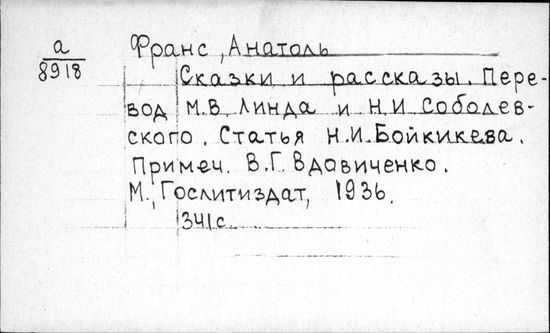 а
8918
Франс, Анатоль
Сказки и рассказы. Пере-
вод М.В. Линда и Н.И Соболев-
ского. Статья Н.И.Бойкикева.
Примеч. В.Г. Вдовиченко.
М., Гослитиздат, 1936.
341с.